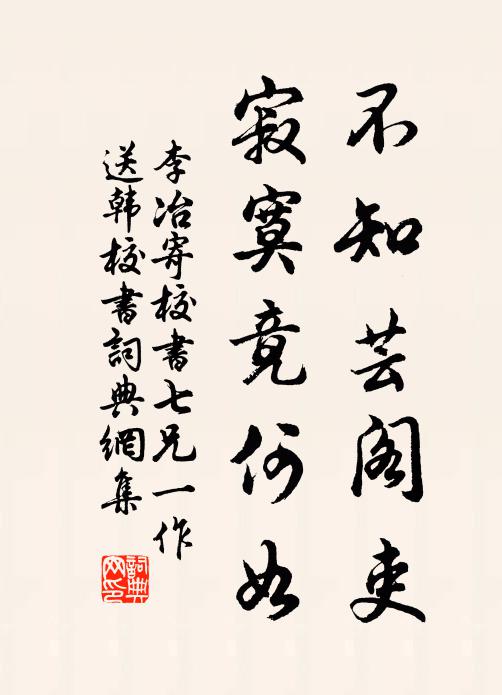 不知芸阁吏
寂寞竟何如
李冶寄校书七兄一作
送韩校书詞典網集
詞典网印